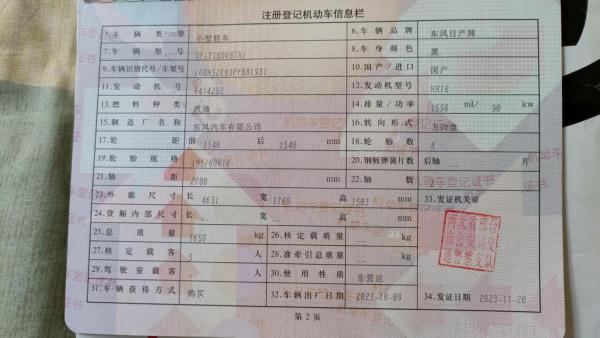 注册登记机动车信息栏
5.车辆类型 小型轿车 6.车辆品牌 东风日产牌
7.车辆型号 8.车身颜色 黑
9.车辆识别代号/车架号 10.国产/进口 国产
11.发动机号 12.发动机型号 HR16
13.燃料种类 汽油 14.排量/功率 1598 ml/ 90 kw
15.制造厂名称 东风汽车有限公司 16.转向形式 方向盘
17.轮距 前 1540 后 1540 mm 18.轮胎数 4
19.轮胎规格 195/60R16 20.钢板弹簧片数 后轴 -- 片
21.轴距 2700 mm 22.轴数 2
23.外廓尺寸 长 4631 宽 1760 高 1503 mm 33.发证机关章
24.货厢内部尺寸 长 -- 宽 -- 高 -- mm
25.总质量 1650 kg 26.核定载质量 -- kg
27.核定载客 5 人 28.准牵引总质量 -- kg
29.驾驶室载客 -- 人 30.使用性质
31.车辆获得方式 购买 32.车辆出厂日期 2023-10-09 34.发证日期 2023-11-20
第2页